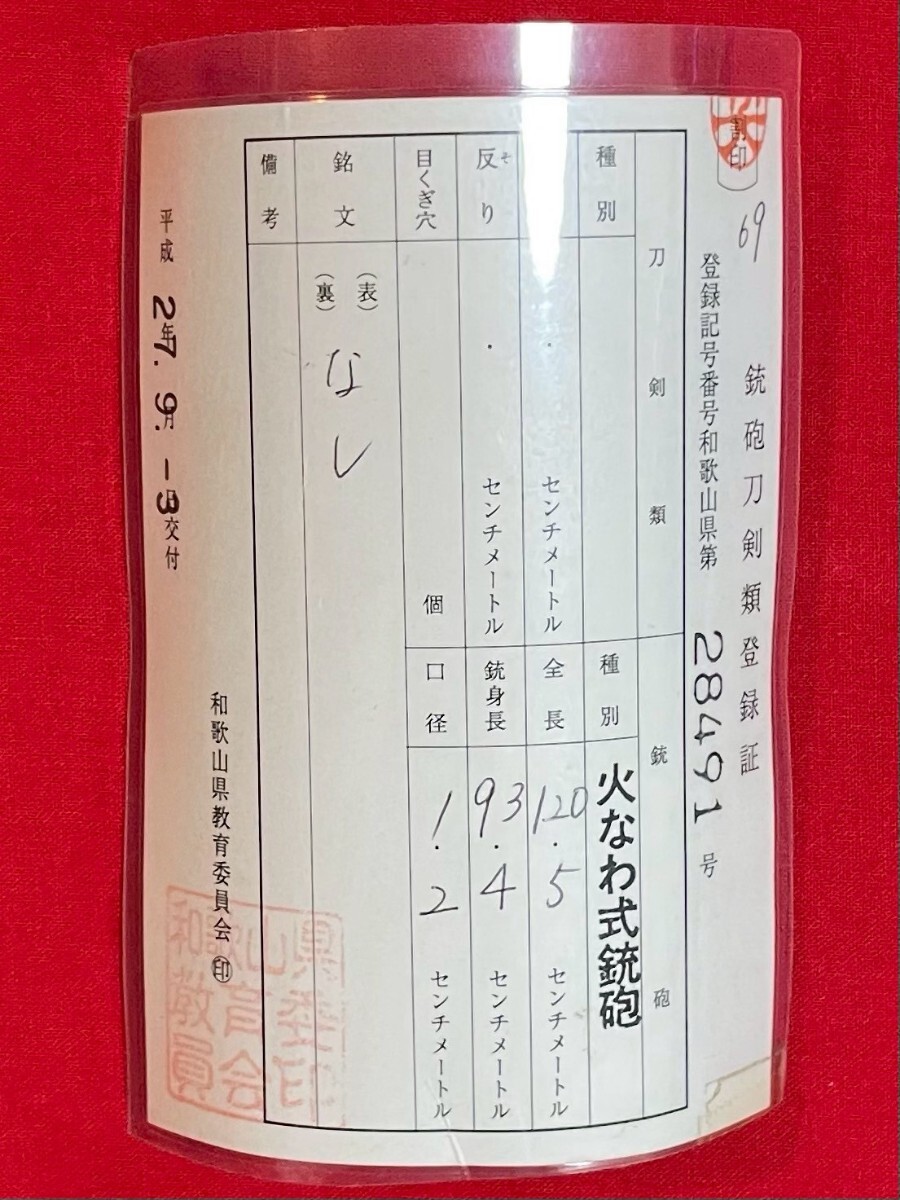 割印
69
銃砲刀剣類登録証
登録記号番号和歌山県第 28491 号
刀剣類
銃砲
種別
種別 火なわ式銃砲
・ センチメートル
全長 120.5 センチメートル
反り ・ センチメートル
ソ
銃身長 93.4 センチメートル
目くぎ穴 個
口径 1.2 センチメートル
銘文
(表)
(裏)
なし
備考
和歌山県教育委員会 ㊞
和歌山県
教育委
員会印
平成 27年 9.月 -3日交付